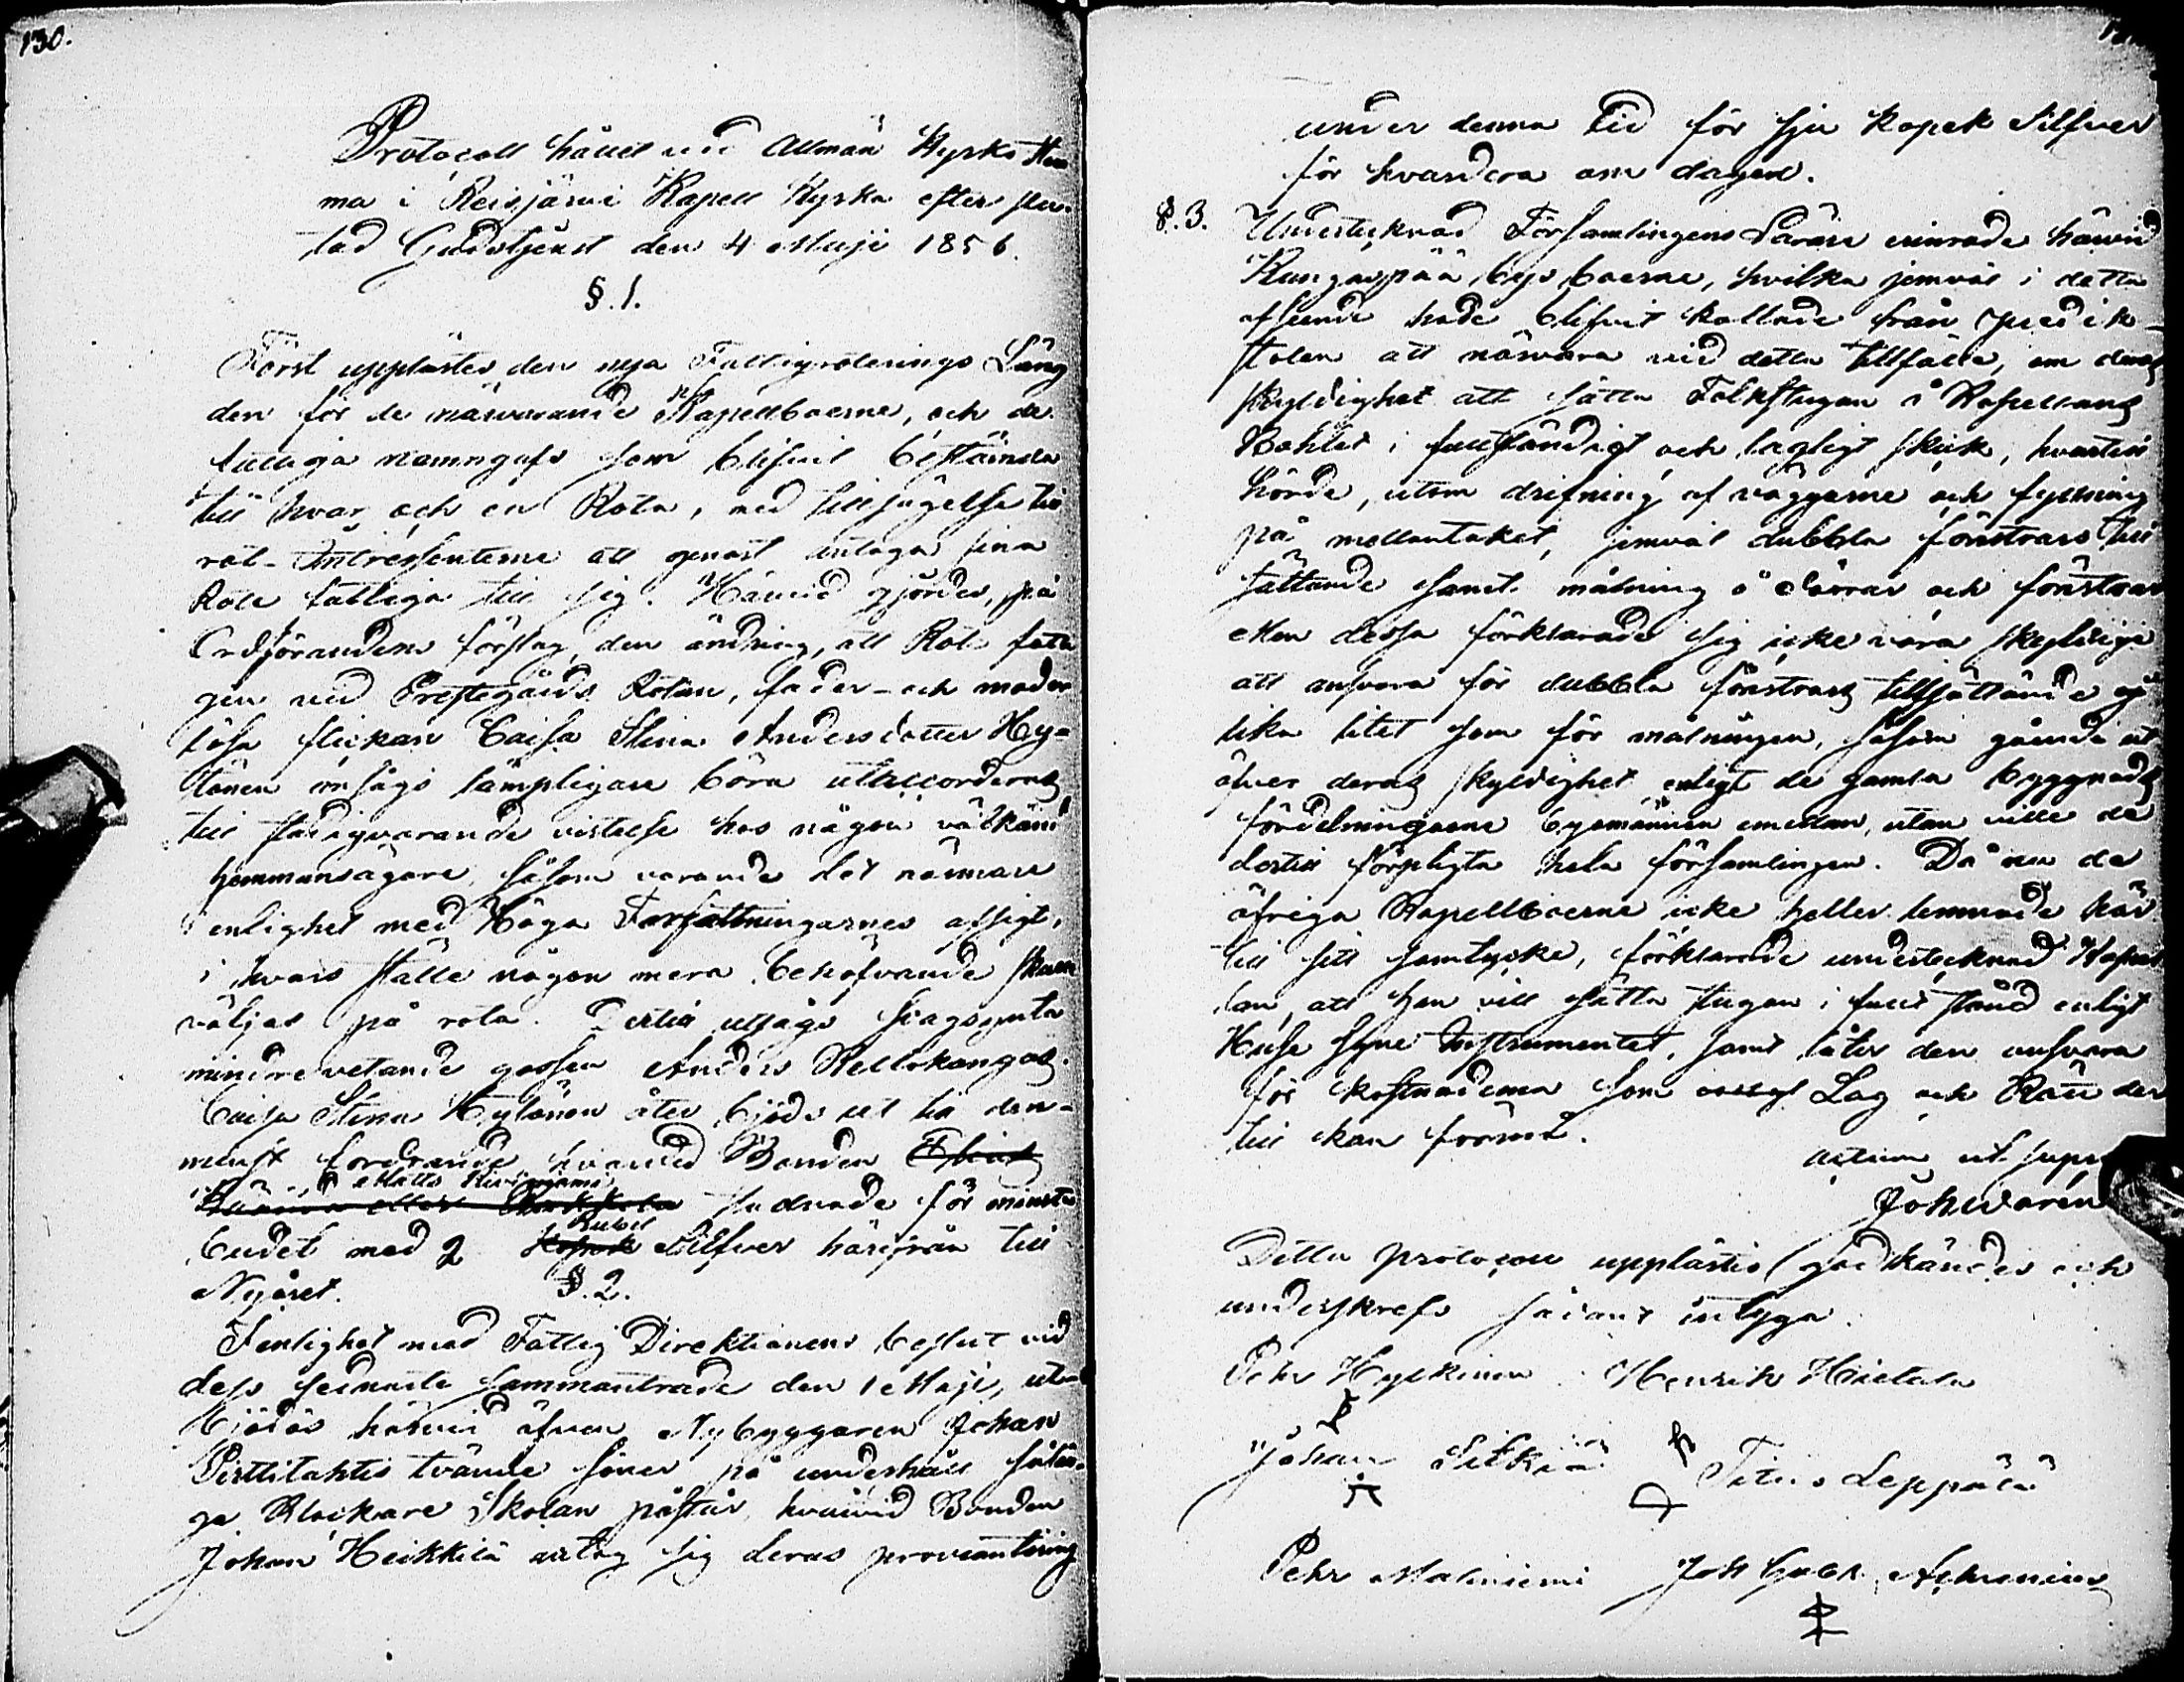 130.
Protocoll hållet vid Allmän Kyrko Stäm
ma i Reisjärvi Kapell Kyrka efter slu-
tad Gudstjenst den 4 Maji 1856.
§. 1.
Först upplästes den nya Fattigroterings Läng
den för de närvarande Kapellboerne, och de
fattiga namngafs som blifvit bestämda
till hvar och en Rota, med tillsägelse till
rot-Intressenterne att genast intaga sina
Rote fattiga till sig. Härvid gjordes, på
Ordförandens förslag, den ändring, att Rote fatti
gen vid Prestegårds Rotan, fader- och moder
lösa flickan Caisa Stina Andersdotter Hy-
tönen ansågs lämpligare böra utaccorderas
till stadigvarande vistelse hos någon välkänd
hemmansägare, såsom varande det närmare
i enlighet med Höga Författningarnes afsigt,
i hvars ställe någon mera behöfvande skulle
väljas på rota. Dertill utsågs
mindre vetande gossen Anders Kellokangas.
Caisa Stina Hytönen åter bjöds ut till den
minst fordrande hvarvid Bonden
Matts Kiviniemi stadnade för minsta
budet med 2 Kopek Rubel Silfver härifrån till
Nyåret. §. 2.
I enlighet med Fattig Direktionens beslut vid
dess sednaste sammanträde den 1 Maji, ut
bjödos härvid äfven Nybyggaren Johan
Pirttilahtis tvänne söner på underhåll sålän-
ge Klockare Skolan påstår, hvarvid Bonden
Johan Heikkilä antog sig deras proviantering
under denna tid för sju kopek Silfver
för hvardera om dagen.
§. 3. Undertecknad Församlingens Lärare erinrade härvid
Kangaspää bys boerne, hvilka jemväl i detta
afseende hade blifvit kallade från predik-
stolen att närvara vid detta tillfälle, om deras
skyldighet att sätta Folkstugan å Kapellans
Bohlet i fullständigt och lagligt skick, hvartill
hörde, utom drifning af väggarne och fyllning
på mellantaket, jemväl dubbla fönstrars till
sättande samt målning å dörrar och fönstrar
Men dessa förklarade sig icke vara skyldige
att ansvara för dubbla fönstrars tillsättande ej
lika litet som för målningen, såsom gående ut
öfver deras skyldighet enligt de gamla byggnads
fördelningarne byemännen emellan, utan ville de
dertill förpligta hela församlingen. Då nu de
öfriga Kapellboerne icke heller lemnade här
till sitt samtycke, förklarade undertecknad Kapel
lan, att han vill sätta stugan i fullt stånd enligt
Huse Syne Instrumentet, samt låter den ansvara
för kostnaderna som Lag och Rätt der
till kan förmå.
actum ut supra
Joh. Warén
Detta protocoll upplästes, godkändes och
underskrefs sådant intyga.
Pehr Hyskinen Henrik Hietala
Johan Sitkiä Titus Leppälä
Pehr Maliniemi Joh Gabr.